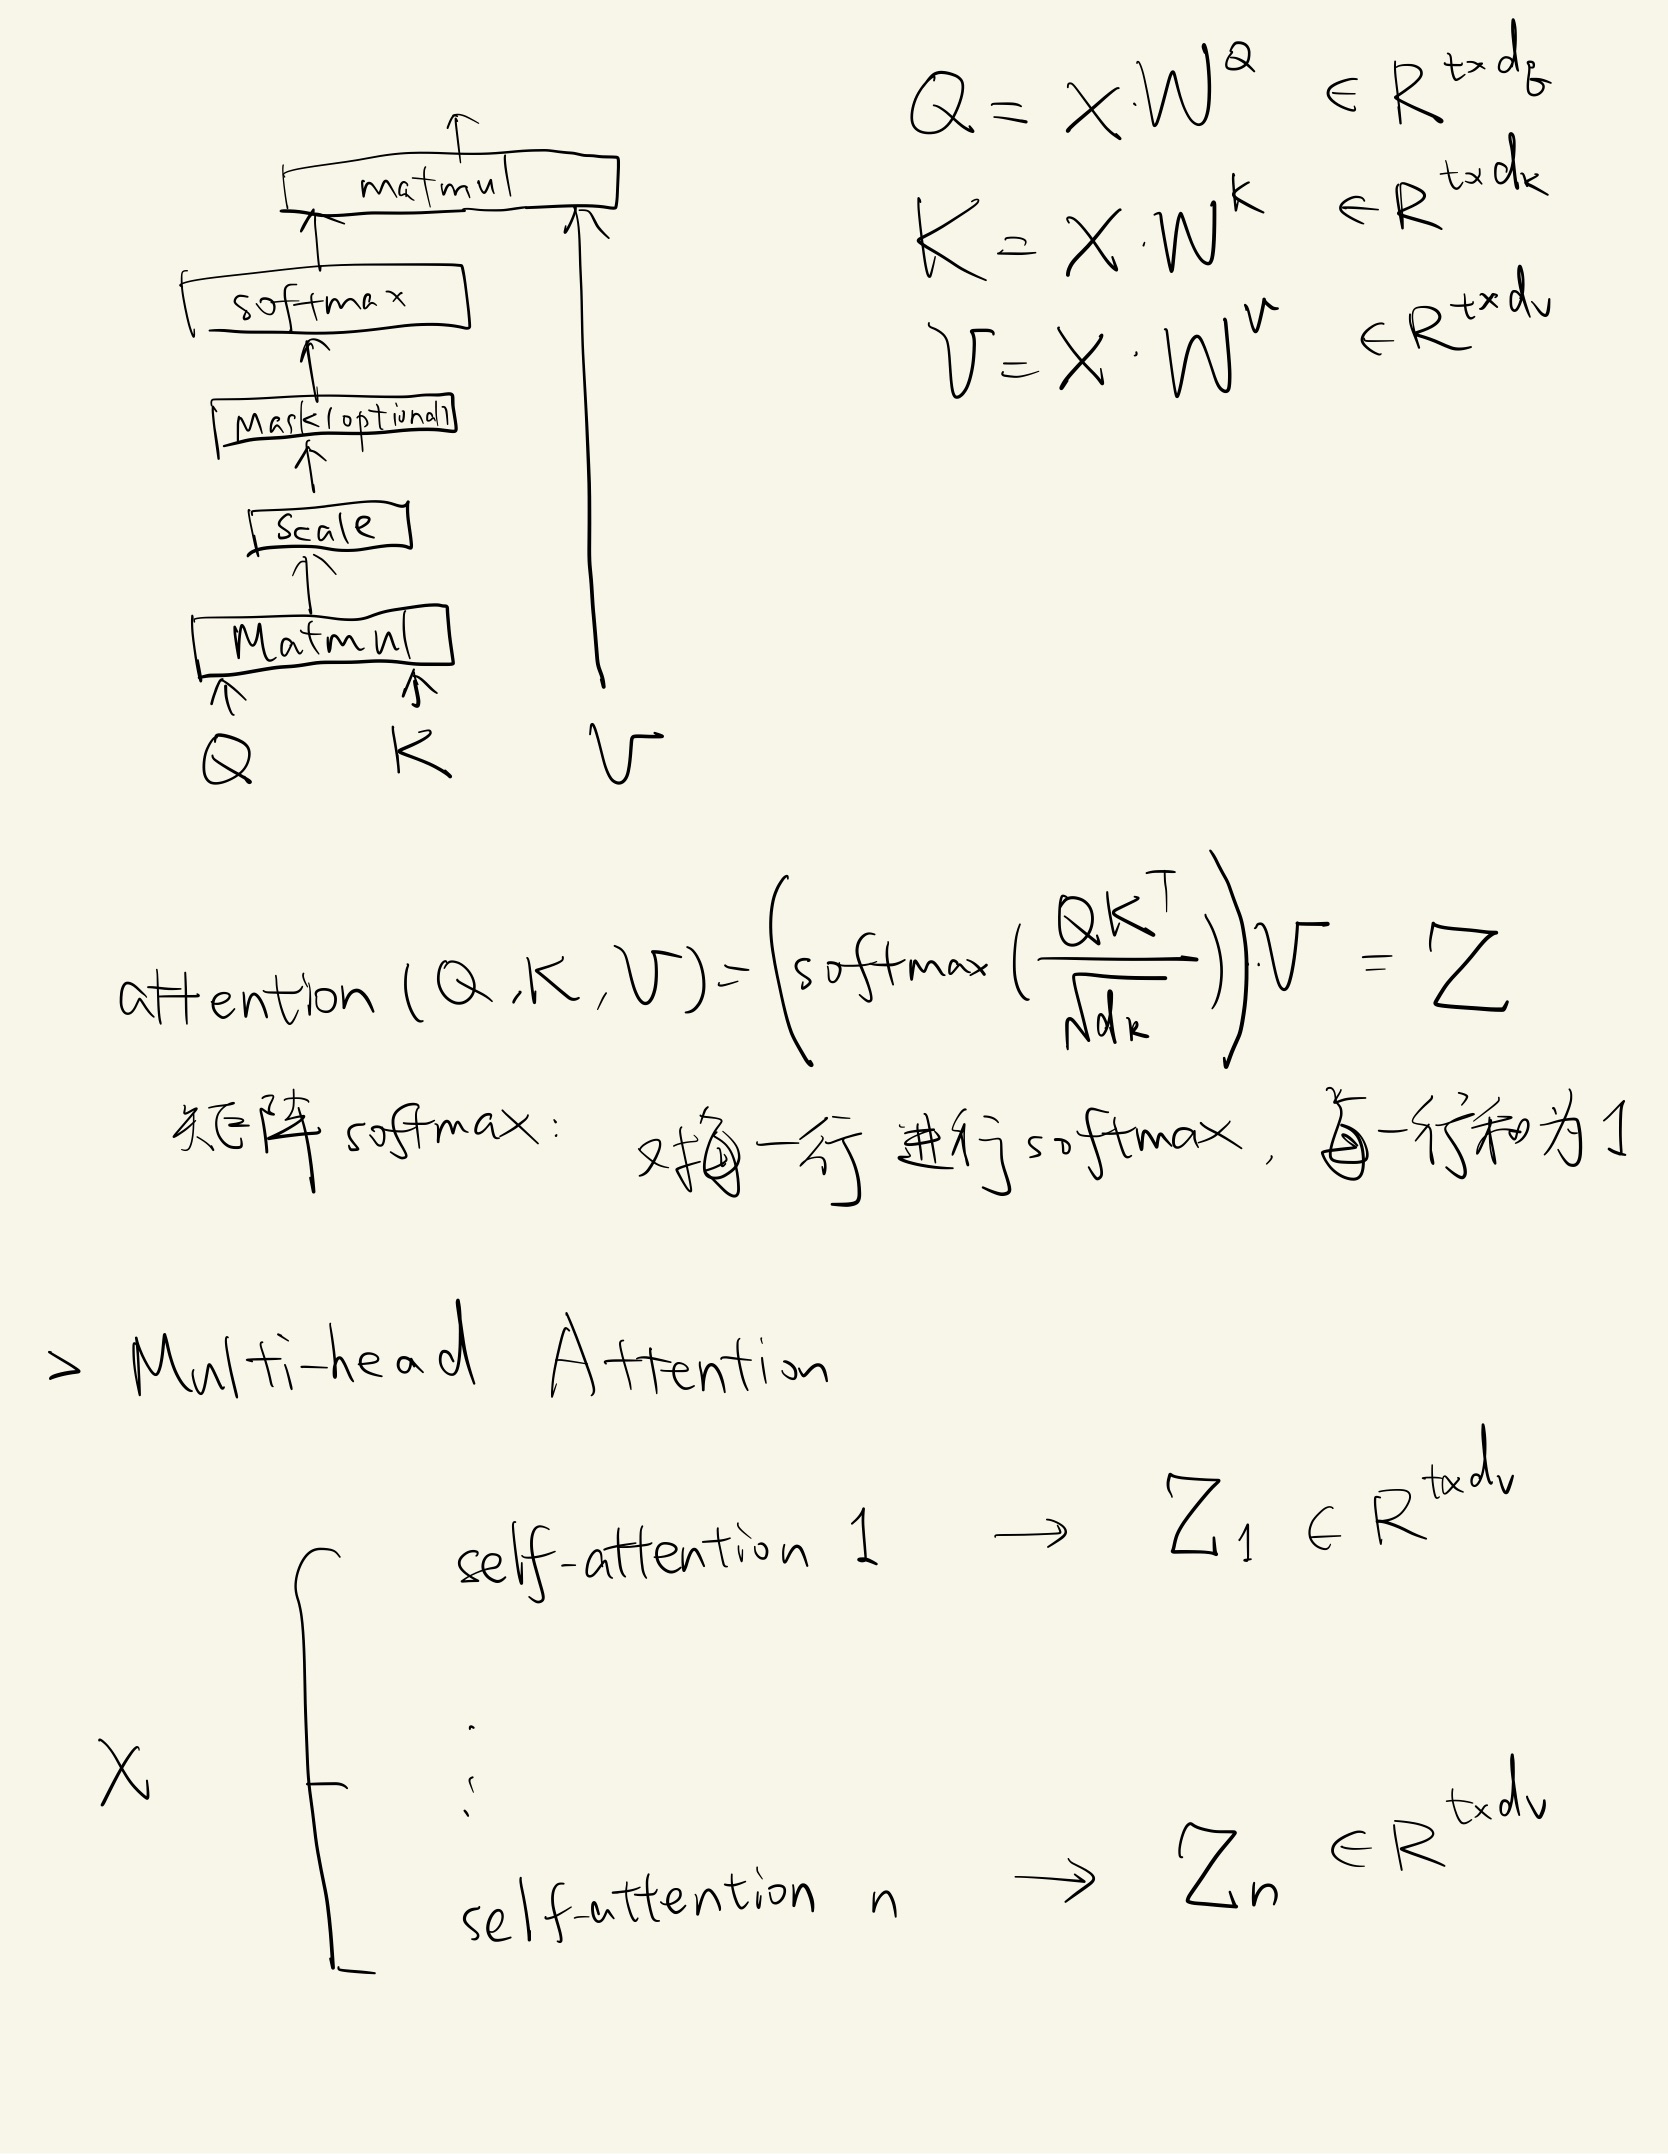 matmul
softmax
Mask(optional)
scale
Matmul
Q K V
Q = X·W^Q ∈ R^{t×d_q}
K = X·W^K ∈ R^{t×d_k}
V = X·W^V ∈ R^{t×d_v}
attention(Q,K,V) = (softmax(QK^T/√d_k))·V = Z
矩阵softmax: 对每一行进行softmax, 每一行和为1
> Multi-head Attention
self-attention 1 → Z_1 ∈ R^{t×d_v}
X
⋮
self-attention n → Z_n ∈ R^{t×d_v}